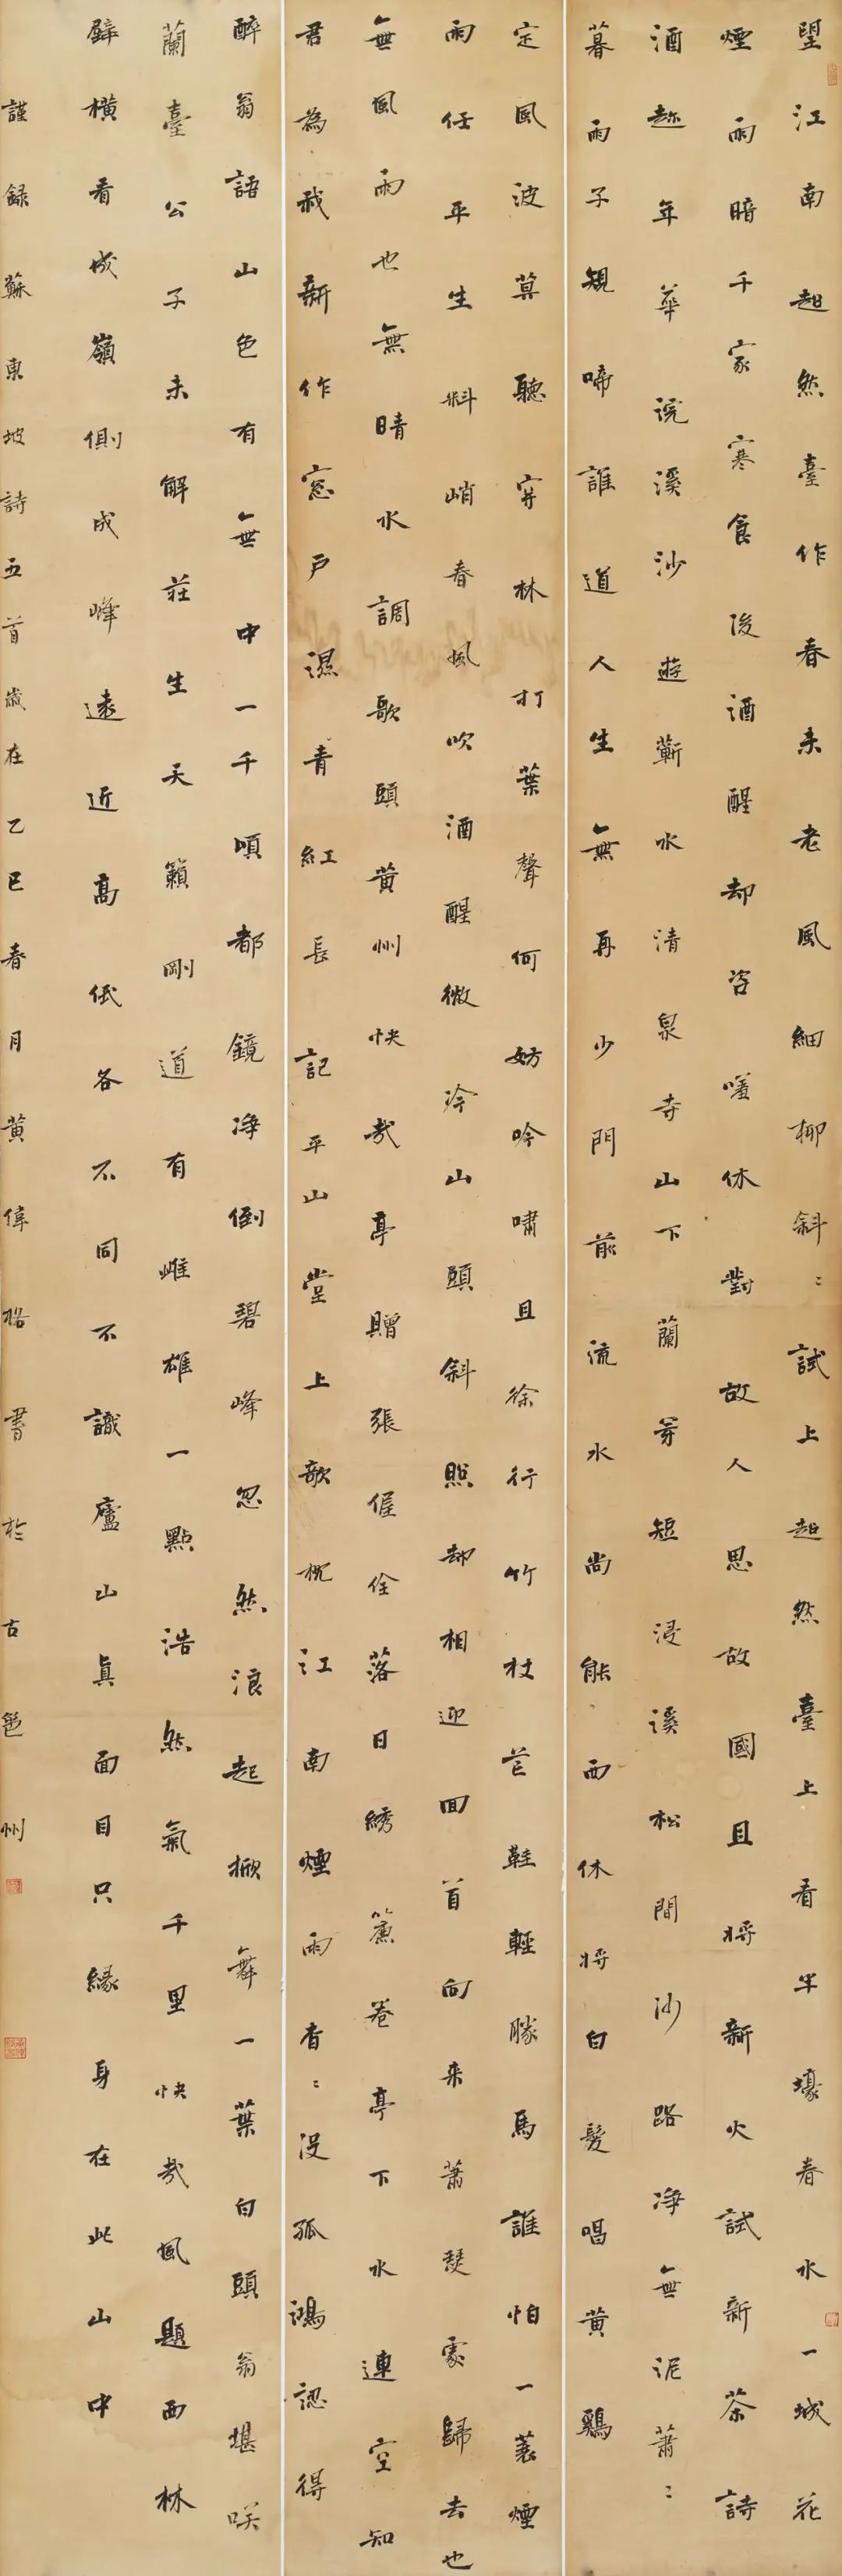 望江南超然臺作春未老風細柳斜〻試上超然臺上看半壕春水一城花
煙雨暗千家寒食後酒醒却咨嗟休對故人思故國且將新火試新茶詩
酒趂年華浣溪沙遊蘄水清泉寺山下蘭芽短浸溪松間沙路淨無泥蕭〻
暮雨子規啼誰道人生無再少門前流水尚能西休將白髮唱黄鷄
定風波莫聽穿林打葉聲何妨吟嘯且徐行竹杖芒鞋輕勝馬誰怕一蓑煙
雨任平生料峭春風吹酒醒微冷山頭斜照却相迎回首向来蕭瑟處歸去也
無風雨也無晴水調歌頭黄州快哉亭贈張偓佺落日綉簾卷亭下水連空知
君為我新作窓戶濕青紅長記平山堂上欹枕江南煙雨杳〻没孤鴻認得
醉翁語山色有無中一千頃都鏡淨倒碧峰忽然浪起掀舞一葉白頭翁堪咲
蘭臺公子未解莊生天籟剛道有雌雄一點浩然氣千里快哉風題西林
壁橫看成嶺側成峰遠近高低各不同不識廬山真面目只緣身在此山中
謹録蘇東坡詩五首歲在乙巳春月黄偉格書於古邕州